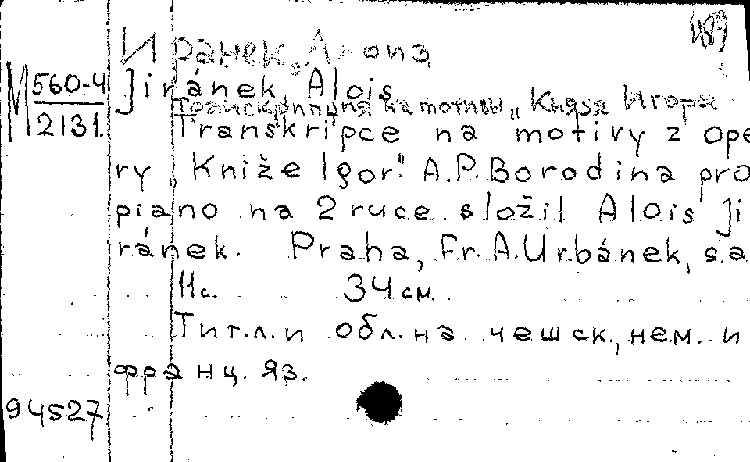 489
Иранек, Алоиз
М 560-4
2131
Jiránek, Alois
Транскрипция на мотивы „Князя Игоря
Transkripce na motivy z ope
ry „Kniže Igor". A.P. Borodina pro
piano na 2 ruce složil Alois Ji
ránek. Praha, Fr. A. Urbánek, s.a.
11 с. 34 см.
Тит. л. и обл. на чешск., нем. и
франц. яз.
94527